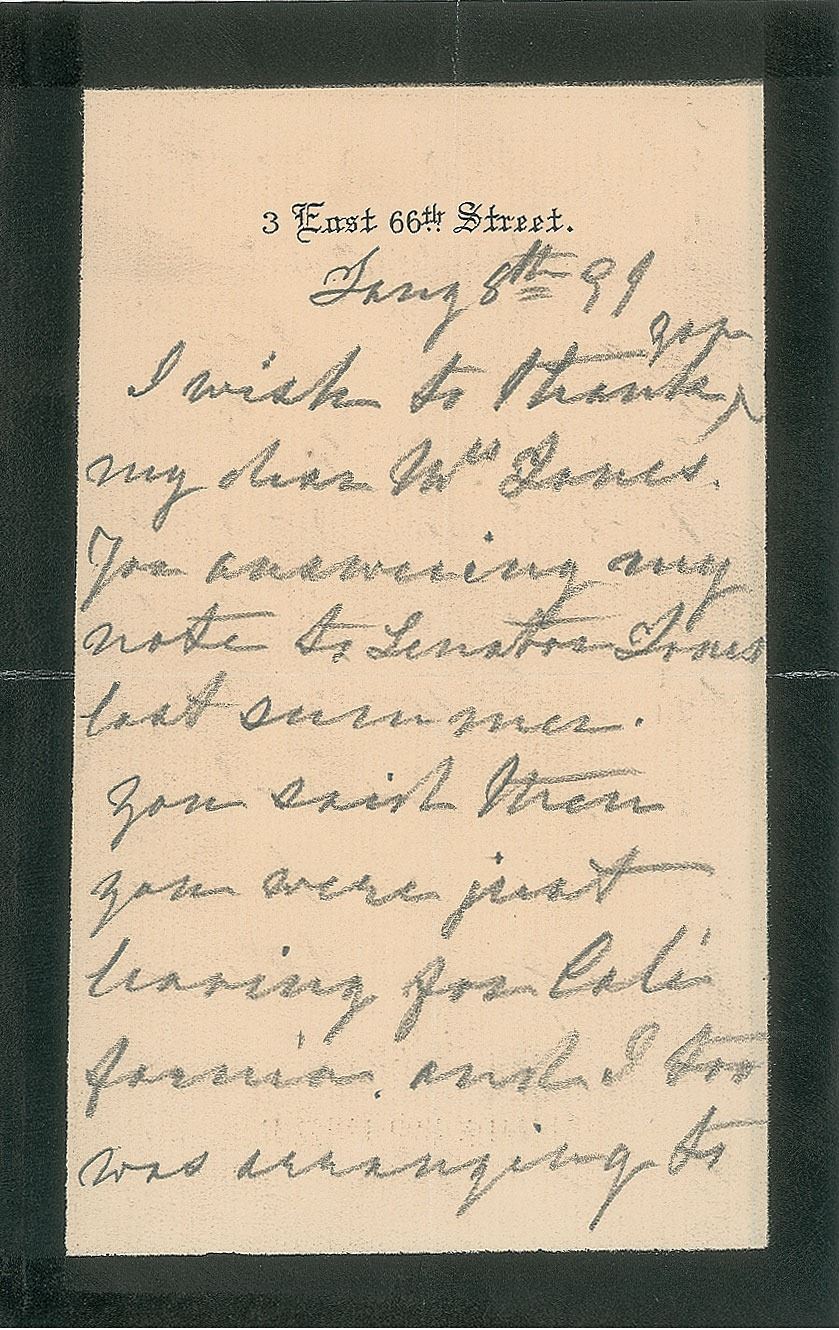 3 East 66th Street.
Jany 8th 91
you
I wish to thank,
my dear Mrs Jones.
For answering my
note to Senator Jones
last summer.
You said then
you were just
leaving for Cali
fornia. and I too
was arranging to